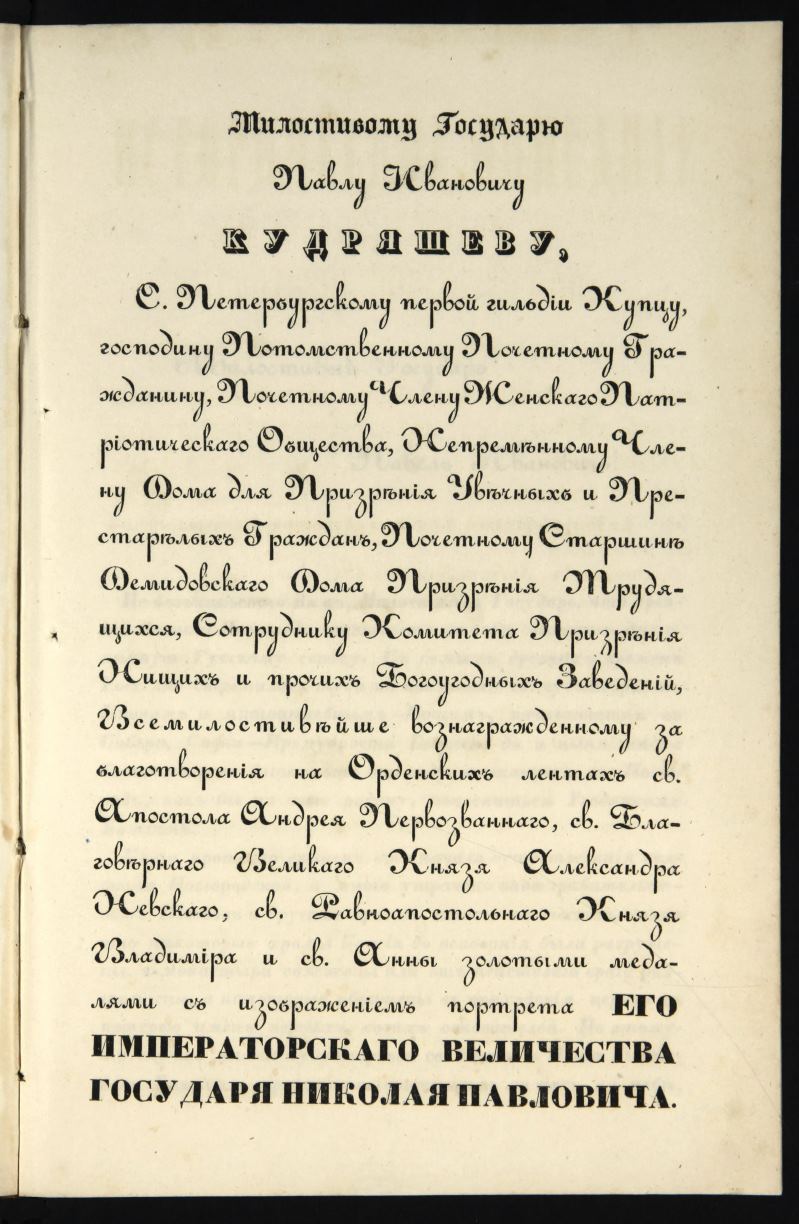 Милостивому Государю
Павлу Ивановичу
КУДРЯШЕВУ,
С. Петербургскому первой гильдіи Купцу,
господину Потомственному Почетному Гра-
жданину, Почетному Члену Женскаго Пат-
ріотическаго Общества, Непремѣнному Чле-
ну Дома для Призрѣнія Увѣчныхъ и Пре-
старѣлыхъ Гражданъ, Почетному Старшинѣ
Демидовскаго Дома Призрѣнія Трудя-
щихся, Сотруднику Комитета Призрѣнія
Нищихъ и прочихъ Богоугодныхъ Заведеній,
Всемилостивѣйше вознагражденному за
благотворенія на Орденскихъ лентахъ св.
Апостола Андрея Первозваннаго, св. Бла-
говѣрнаго Великаго Князя Александра
Невскаго, св. Равноапостольнаго Князя
Владиміра и св. Анны золотыми меда-
лями съ изображеніемъ портрета ЕГО
ИМПЕРАТОРСКАГО ВЕЛИЧЕСТВА
ГОСУДАРЯ НИКОЛАЯ ПАВЛОВИЧА.